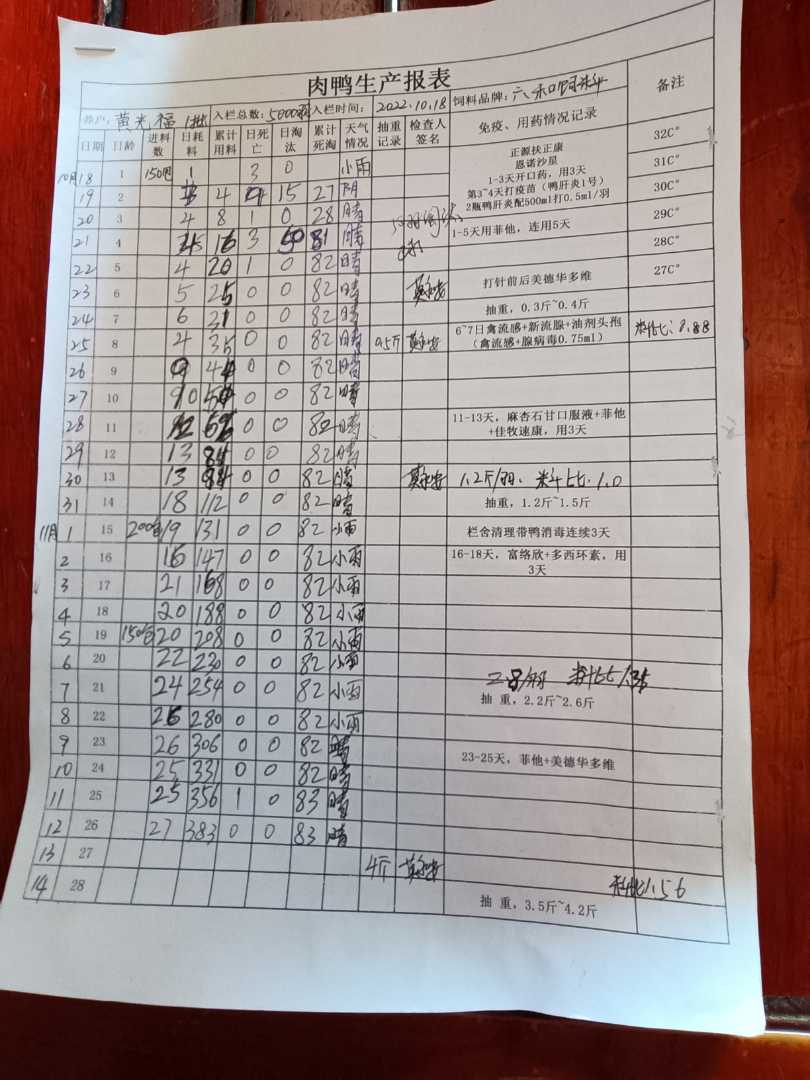 肉鸭生产报表
养户：黄光福 1批 入栏总数：5000羽 入栏时间：2022.10.18 饲料品牌：六和饲料 备注
日期 日龄 进料数 日耗料 累计用料 日死亡 日淘汰 累计死淘 天气情况 抽重记录 检查人签名 免疫、用药情况记录
10月18 1 150包 1 3 0 小雨 正源扶正康 32C°
恩诺沙星
1-3天开口药，用3天
19 2 4 15 27 阴 第3~4天打疫苗（鸭肝炎1号） 31C°
2瓶鸭肝炎配500ml打0.5ml/羽
20 3 4 8 1 0 28 晴 30C°
21 4 16 3 50 81 晴 1-5天用菲他，连用5天 29C°
28C°
22 5 4 20 1 0 82 晴 27C°
23 6 5 25 0 0 82 晴 打针前后美德华多维
24 7 6 31 0 0 82 晴 抽重，0.3斤~0.4斤
25 8 4 35 0 0 82 晴 0.5斤 6~7日禽流感+新流腺+油剂头孢 料比：0.88
（禽流感+腺病毒0.75ml）
26 9 9 44 0 0 82 晴
27 10 10 54 0 0 82 晴
28 11 12 0 0 82 晴 11-13天，麻杏石甘口服液+菲他
+佳牧速康，用3天
29 12 13 0 0 82 晴
30 13 13 94 0 0 82 晴 1.2斤/羽. 料比：1.0
31 14 18 112 0 0 82 晴 抽重，1.2斤~1.5斤
11月1 15 200包 19 131 0 0 82 小雨 栏舍清理带鸭消毒连续3天
2 16 16 147 0 0 82 小雨 16-18天，富络欣+多西环素，用
3天
3 17 21 168 0 0 82 小雨
4 18 20 188 0 0 82 小雨
5 19 150包 20 208 0 0 82 小雨
6 20 22 230 0 0 82 小雨
7 21 24 254 0 0 82 小雨 2.8/羽 料比1.35
抽 重，2.2斤~2.6斤
8 22 26 280 0 0 82 小雨
9 23 26 306 0 0 82 晴 23-25天，菲他+美德华多维
10 24 25 331 0 0 82 晴
11 25 25 356 1 0 83 晴
12 26 27 383 0 0 83 晴
13 27 4斤
14 28 抽 重，3.5斤~4.2斤 料比1.56